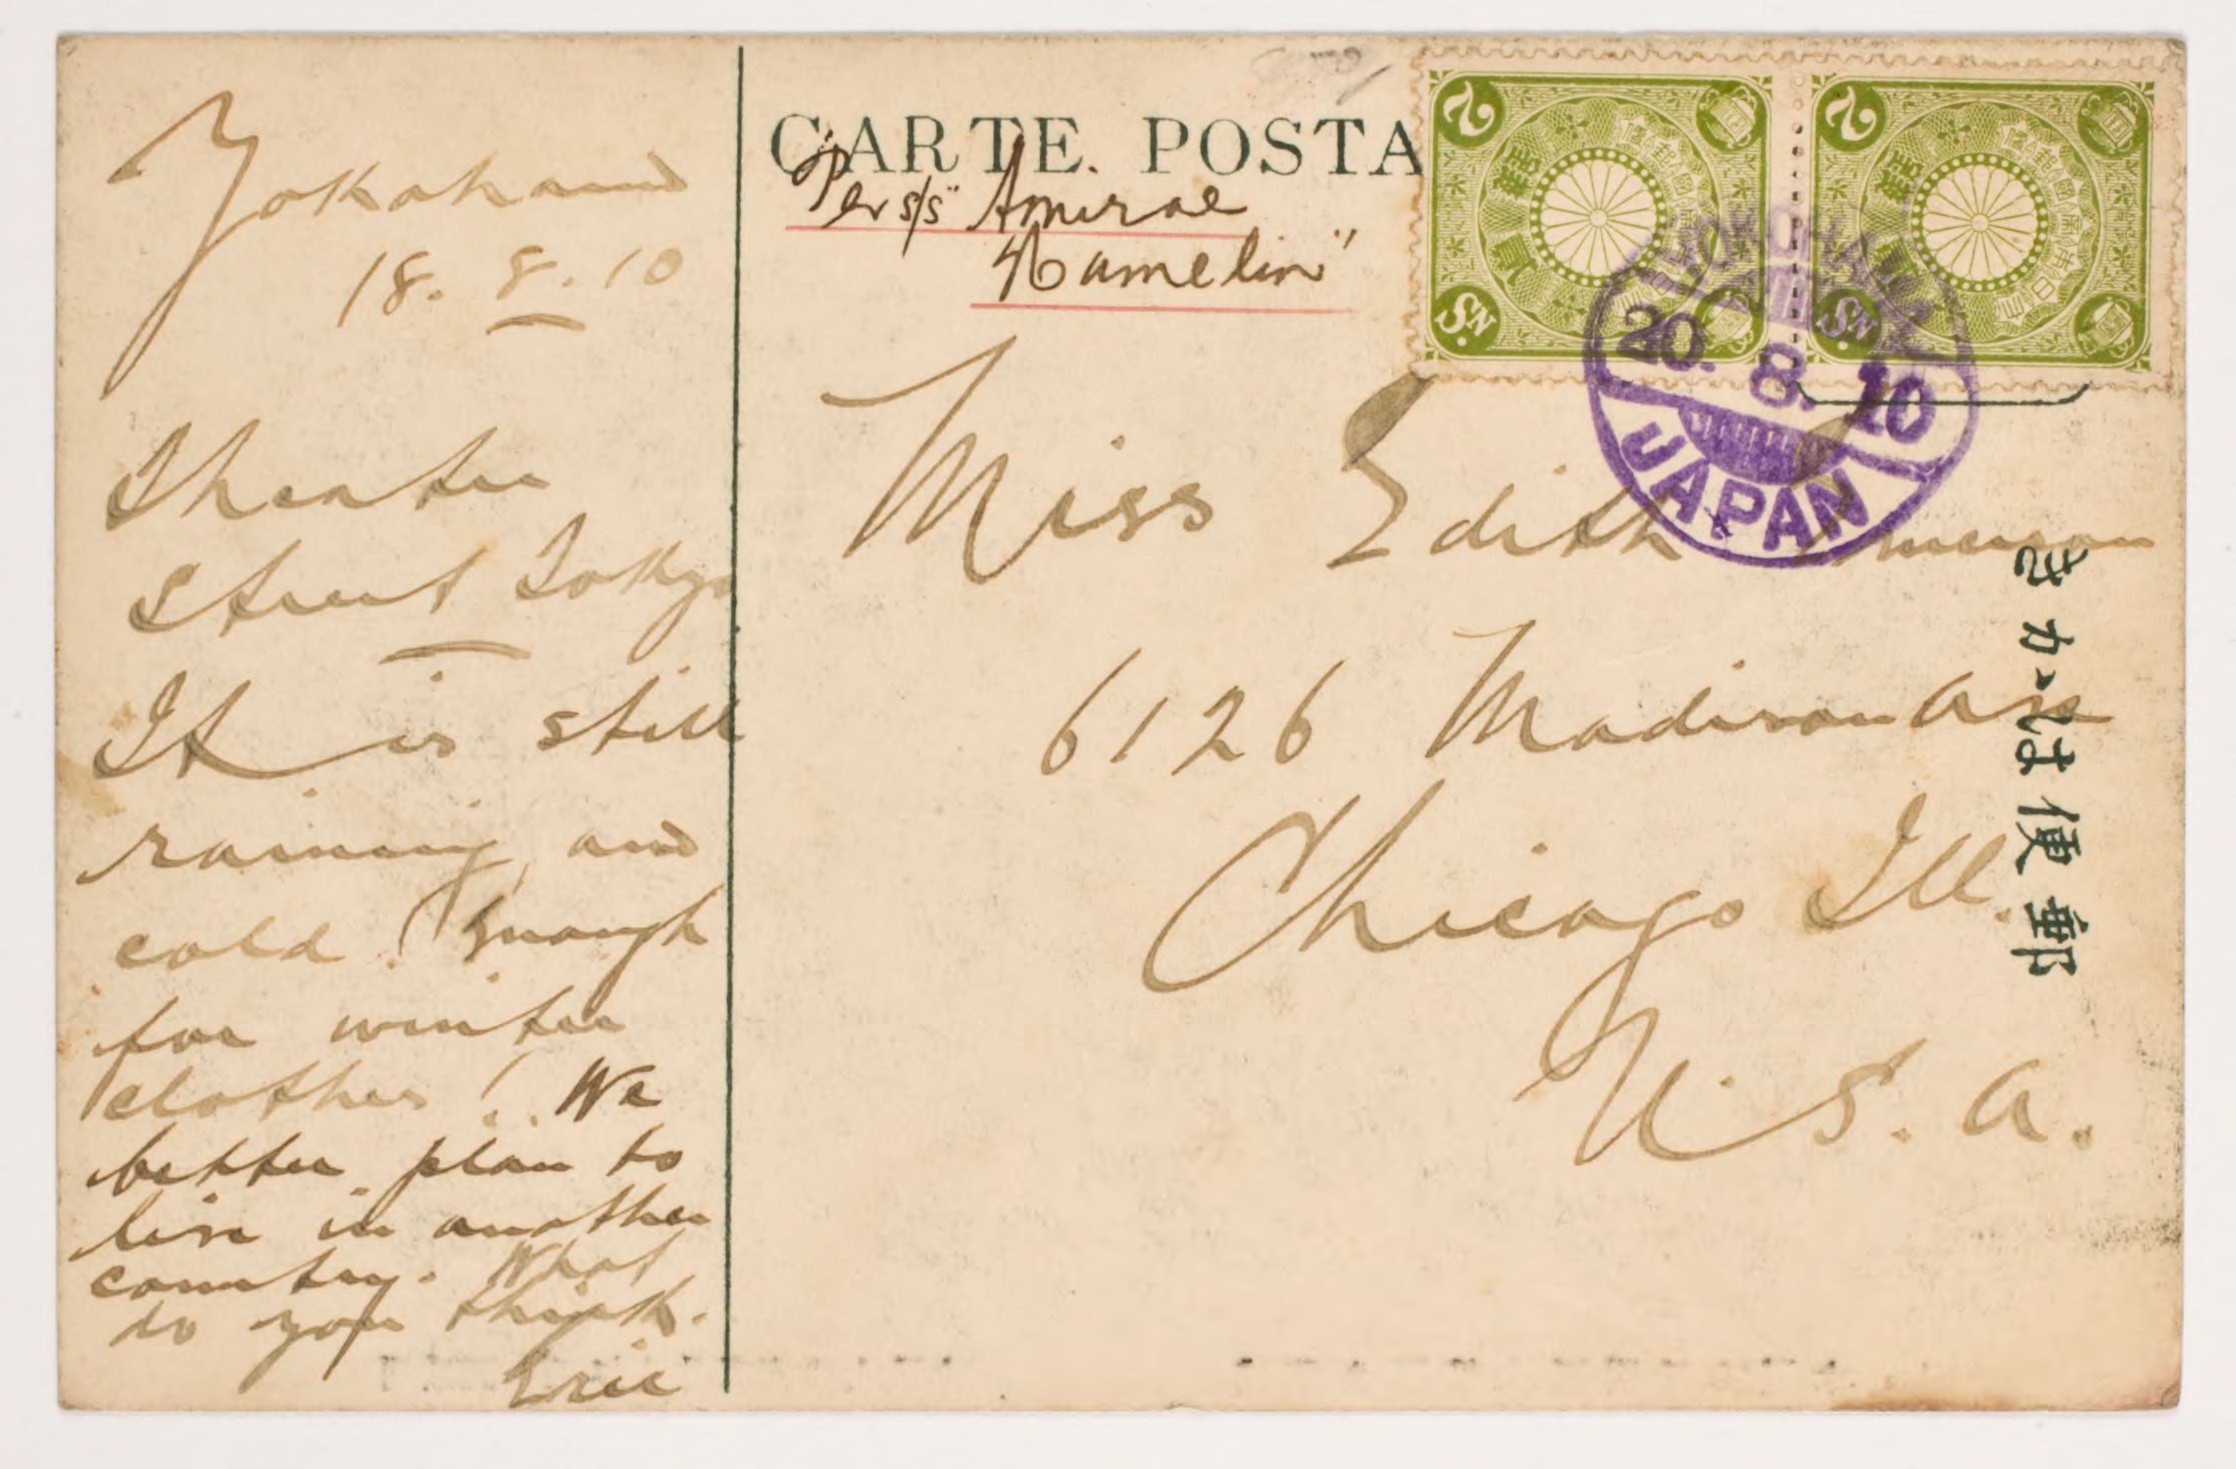 Yokohama
18. 8. 10
Theater
Street Tokyo
It is still
raining and
cold! Enough
for winter
clothes! We
better plan to
live in another
country. What
do you think.
Eric
CARTE POSTA
Per s/s "Amiral
Hamelin"
Miss Edith Emerson
6126 Madison Ave
Chicago Ill.
U. S. A.
YOKOHAMA
20. 8. 10
JAPAN
2
Sn.
2
Sn.
郵便はかき